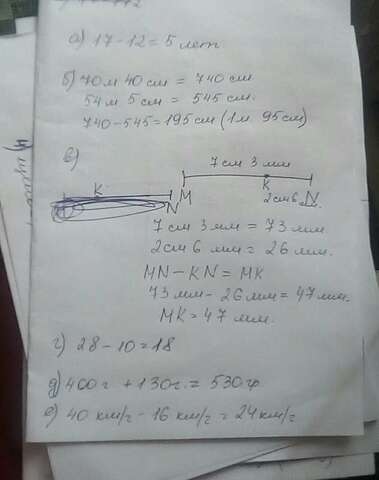 а) 17-12=5 лет
б) 70 м 40 см = 740 см
54 м 5 см = 545 см.
740-545=195 см (1 м 95 см)
в)
7 см 3 мм
К К
N M 2см6 N
7 см 3 мм = 73 мм
2 см 6 мм = 26 мм.
MN - KN = MK
73 мм - 26 мм = 47 мм.
MK = 47 мм.
г) 28-10=18
д) 400 г + 130 г. = 530 гр.
е) 40 км/г - 16 км/г = 24 км/г